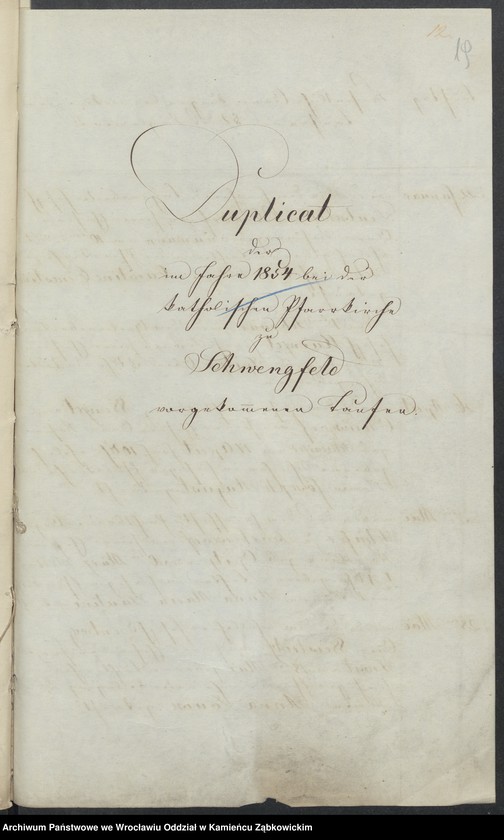 12.
19
Duplicat
der
im Jahre 1854 bei der
katholischen Pfarrkirche
zu
Schwengfeld
vorgekom̅enen Taufen.
Archiwum Państwowe we Wrocławiu Oddział w Kamieńcu Ząbkowickim